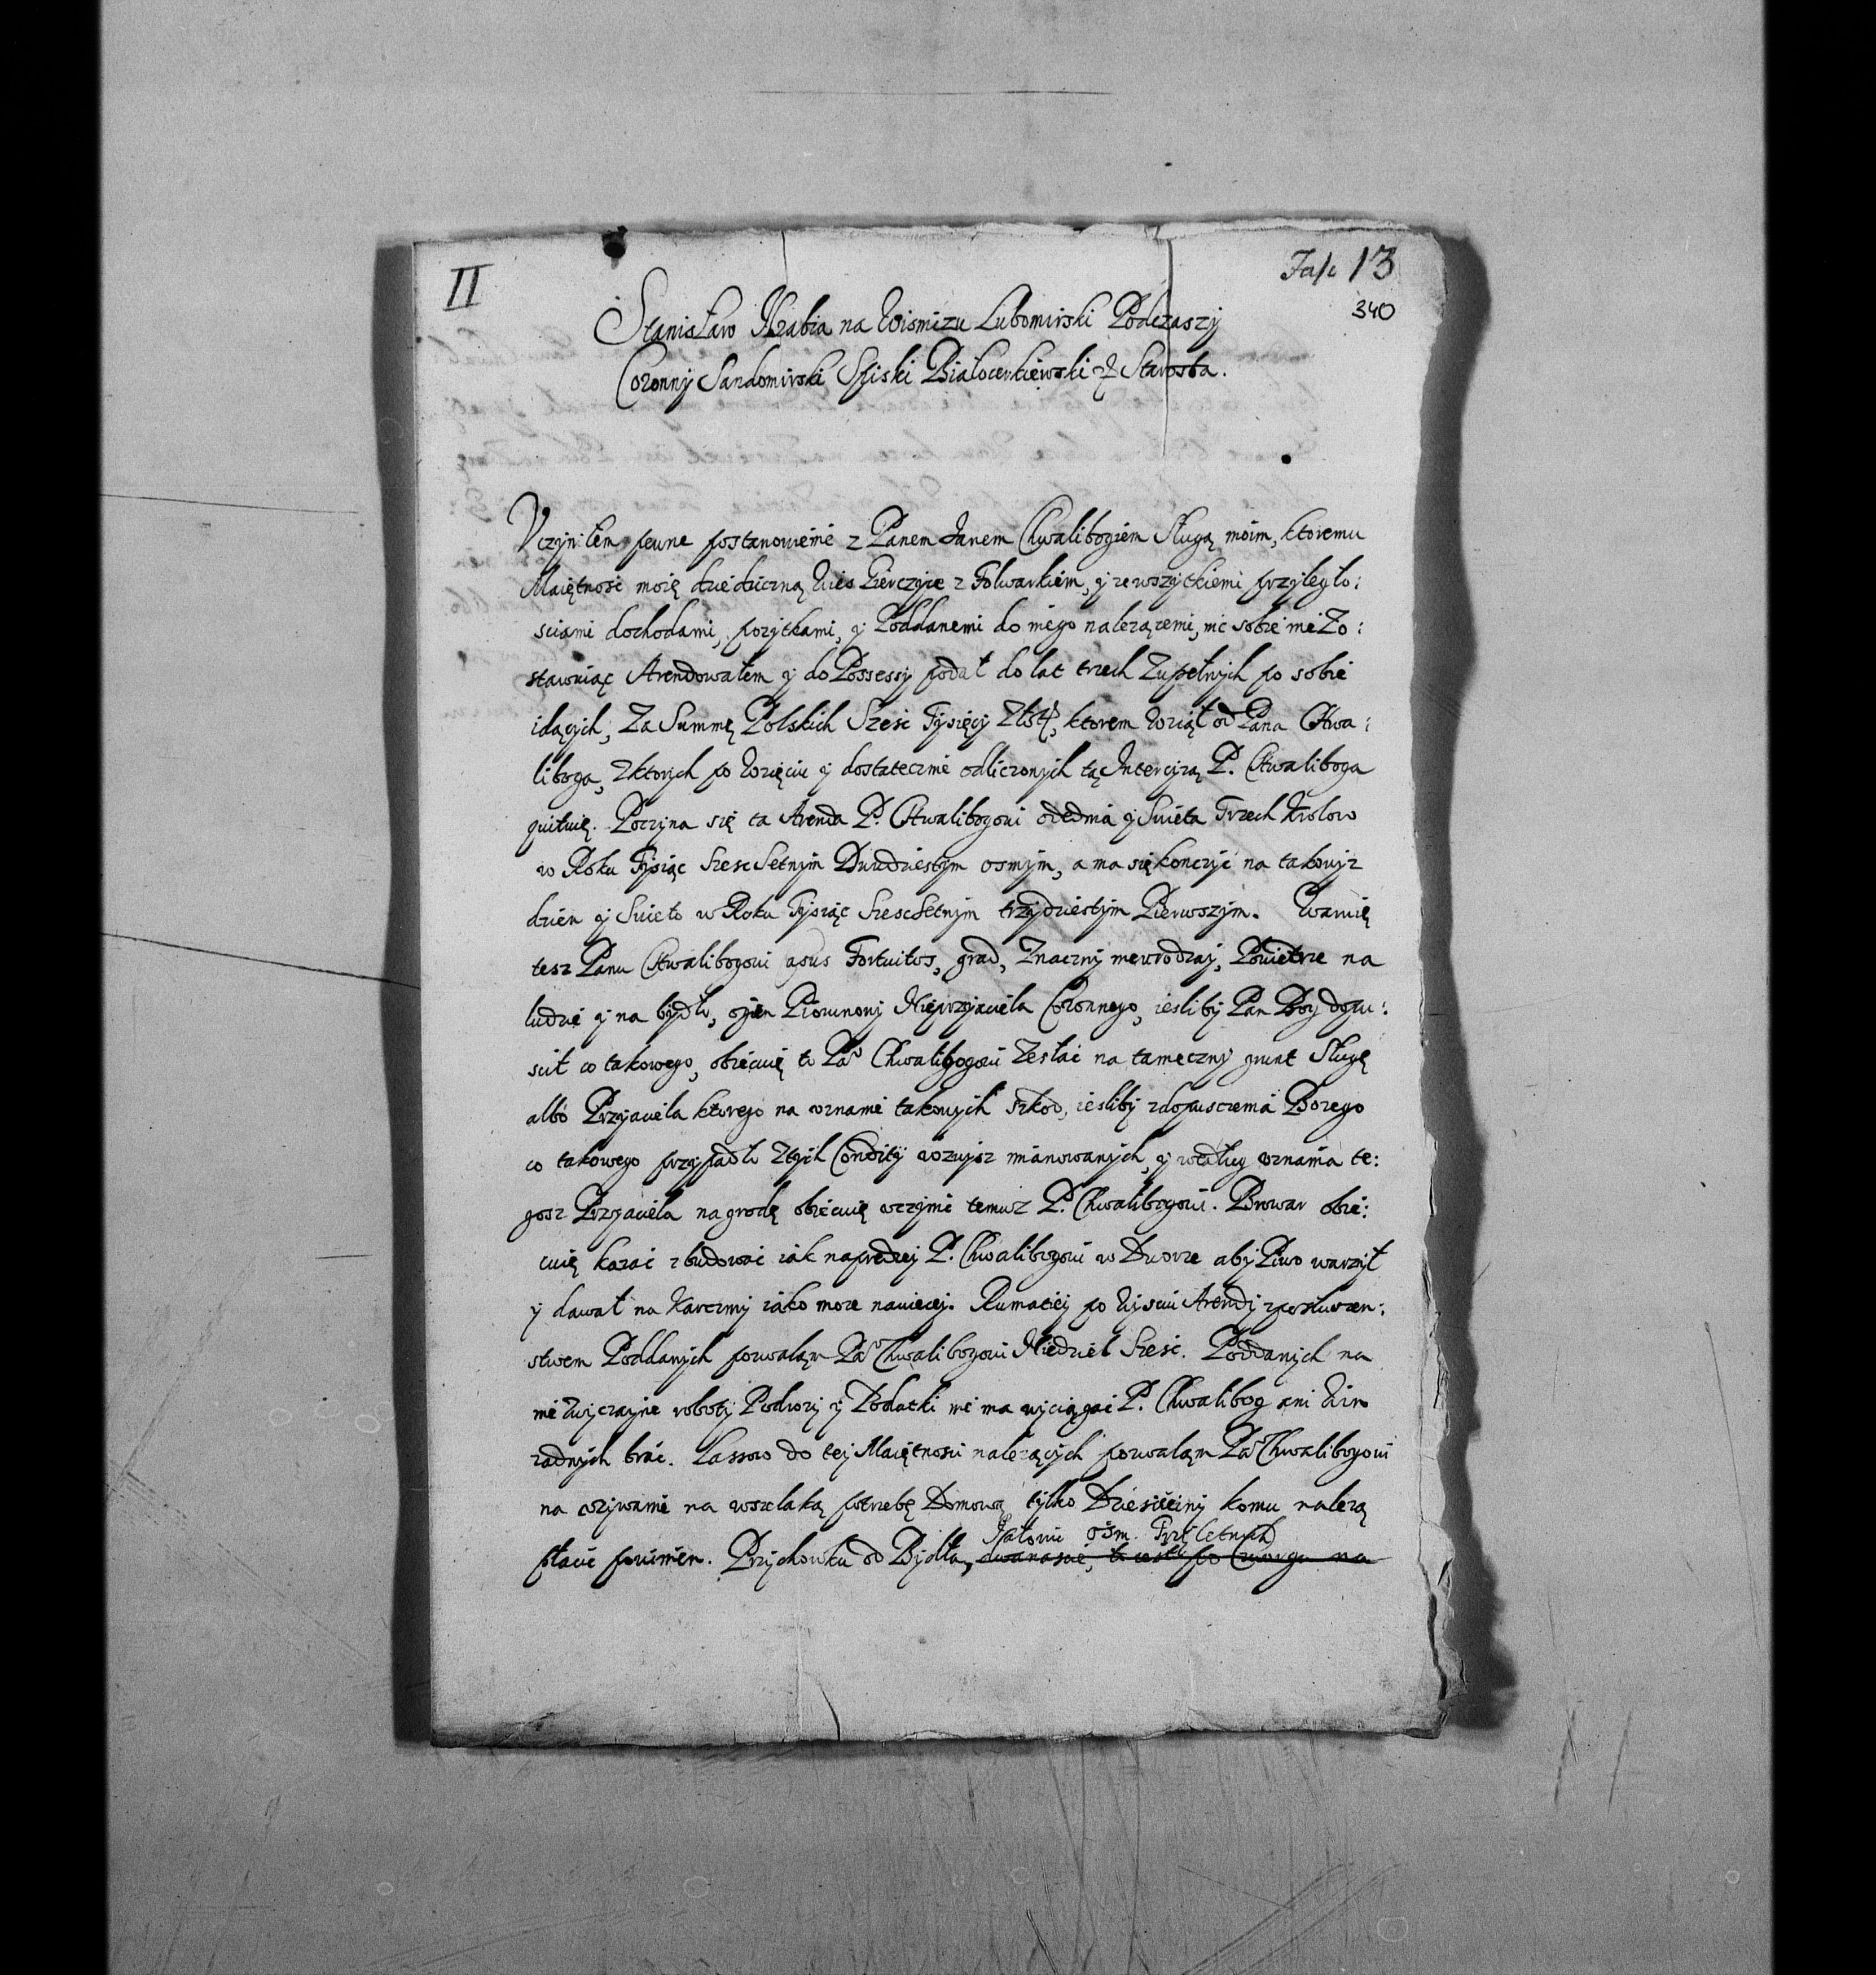 II
Fasc 13
340
Stanisław Hrabia na Wiśniczu Lubomirski Podczaszy
Coronny Sandomirski Spiski Białocerkiewski & Starosta.
Uczyniłem pewne postanowienie z Panem Janem Chwalibogiem Sługą moim, ktoremu
Maiętnosc moię dziedziczną Wies Pierczyce z Folwarkiem, y ze wszytkiemi przyległo:
sciami dochodami, pozytkami, y Poddanemi do niego nalezącemi, nic sobie nie Zo:
stawuiąc Arendowałem y do Possessy podał do lat trzech Zupełnych po sobie
idących, Za Summę Polskich Szesc Tysięcy Złotych, ktorem wziął od Pana Chwa:
liboga, Z ktorych po wzięciu y dostatecznie odliczonych tą Intercyzą P. Chwaliboga
quituię. Poczyna się ta Arenda P. Chwalibogowi ode dnia y Swięta Trzech Krolow
w Roku Tysiąc Szesc Setnym Dwudziestym osmym, a ma się konczyc na takowyz
dzien y Swieto w Roku Tysiąc Szesc Setnym trzydziestym Pierwszym. Waruię
tesz Panu Chwalibogowi casus Fortuitos, grad, Znaczny nieurodzaj, Powietrze na
ludzie y na bydło, ogien Piorunowy Nieprzyiaciela Coronnego, iesliby Pan Bog dopu:
scił co takowego, obiecuię to Pu Chwalibogowi Zesłac na tameczny grunt Sługę
albo Przyiaciela ktorego na uznanie takowych szkod, iesliby z dopusczenia Bozego
co takowego przypadło z tych Condity wzwysz mianowanych, y według uznania te:
gosz Przyiaciela nagrodę obiecuię uczynic temuz P. Chwalibogowi. Browar obie:
cuię kazac zbudowac iak naprędzej P. Chwalibogowi w Dworze aby Piwo warzył
y dawał na Karczmy iako moze nawiecej. Rumaciej po Wysciu Arendy z posłuszen:
stwem Poddanych pozwaląm Pu Chwalibogowi Niedziel Szesc. Poddanych na
nie zwyczayne roboty Podwozy y Podatki nie ma wyciągac P. Chwalibog ani Win
zadnych brac. Lassow do tej Maiętnosci nalezących pozwaląm Pu Chwalibogowi
na uzywanie na wszelaką potrzebę Domową tylko Dziesięciny komu nalezą
Jałowic osm. Trzy letnich
płacic powinien. Przychowku od Bydła, dwanascie, to iest po Czworgu na